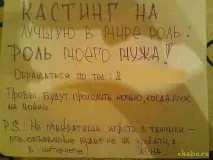 КАСТИНГ НА
ЛУЧШУЮ В МИРЕ РОЛЬ:
РОЛЬ МОЕГО МУЖА!
Обращаться по тел. 8
Пробы будут проходить ночью, когда муж
на
P.S. Не прекратишь играть в танчики -
это объявление будет не на
в интернете! ЖЕНА.
ekabu.ru